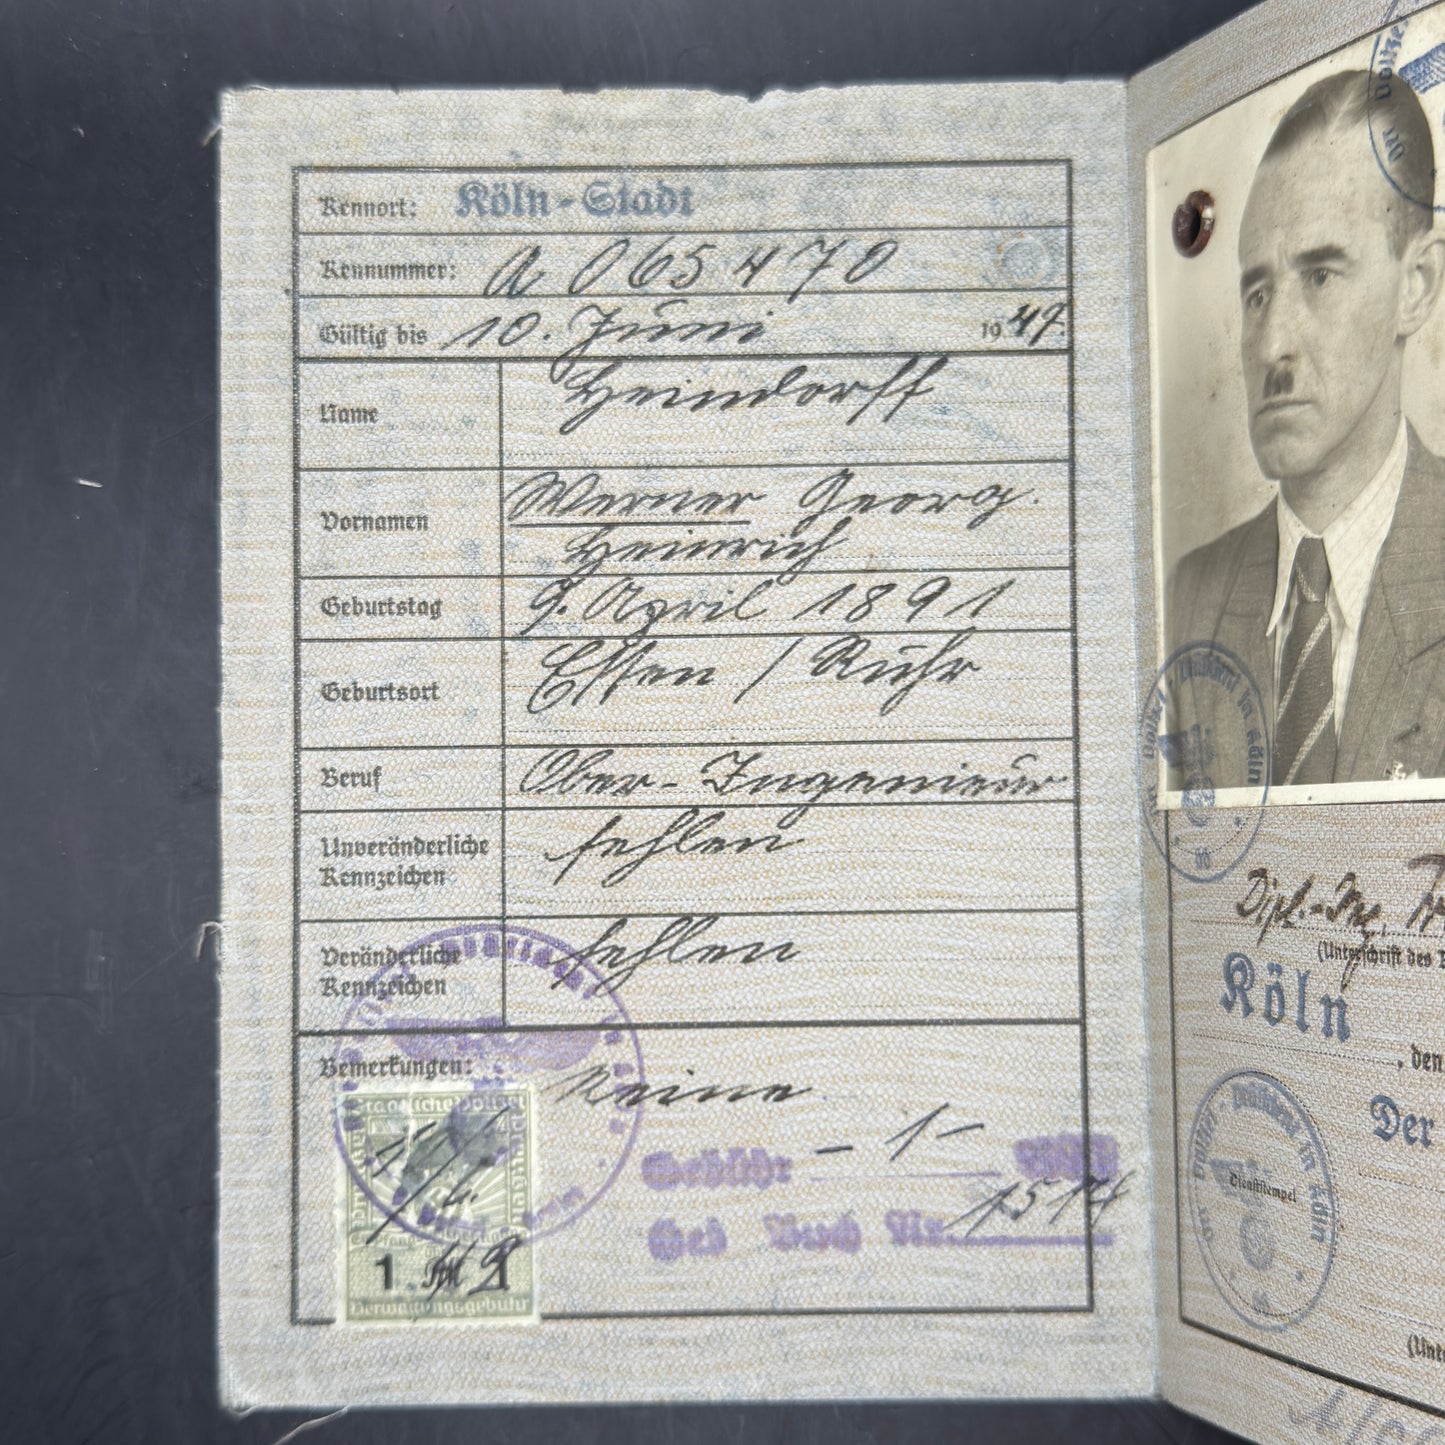 Kennort: Köln-Stadt
Kennummer: A 065470
Gültig bis 10. Juni 1949.
Name Heindorff
Vornamen Werner Georg
Heinrich
Geburtstag 9. April 1891
Geburtsort Essen / Ruhr
Beruf Ober-Ingenieur
Unveränderliche
Kennzeichen fehlen
Veränderliche
Kennzeichen fehlen
Bemerkungen: Keine
Gebühr - 1 -
Geb Buch Nr.
1
Verwaltungsgebühr
Polizei
in Köln
Dipl.-Ing.
(Unterschrift des
Köln
, den
Der
Dienststempel